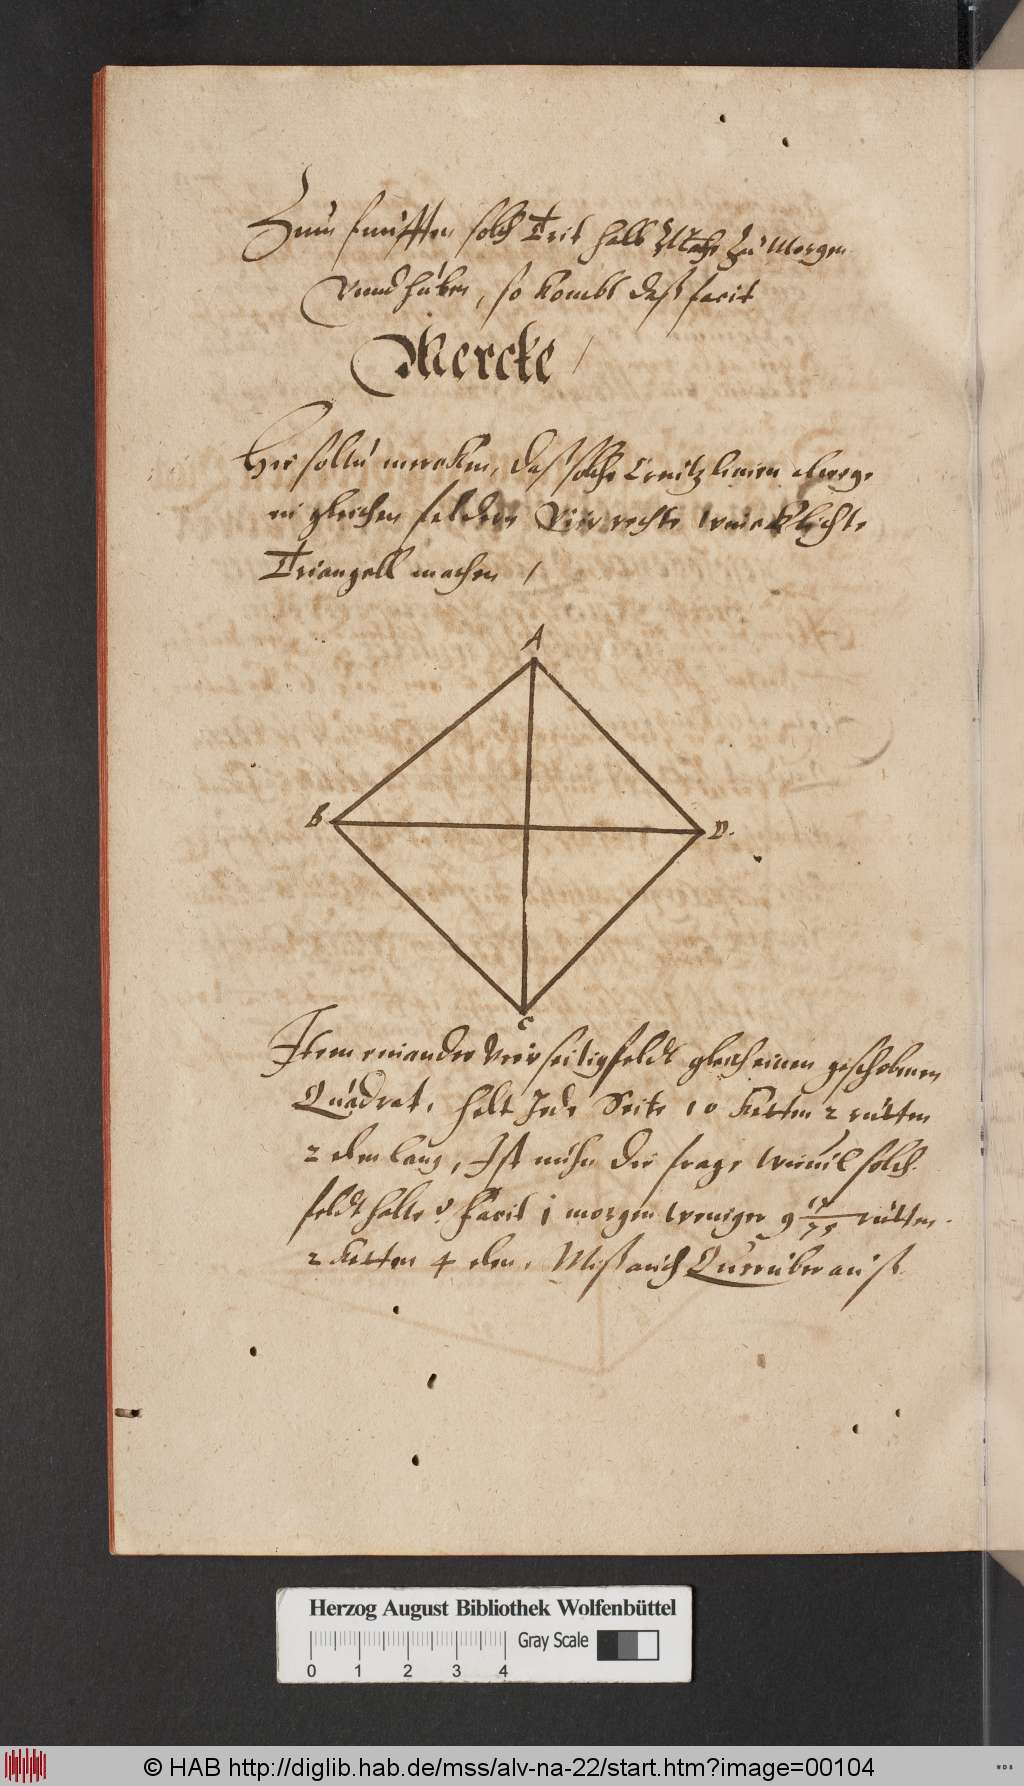 Zum fünfften solch Treib halb Mache Zu Morgen
Vnnd huben, so kombt daß facit
Mercke /
Hie soltu mercken, daß solche Creutz linien alwege
in gleichen feldern Vier rechte winckklichte
Triangell machen /
A
B
D.
C
Item ein ander Vier seitig feldt gleich einen geschobenen
Quadrat, helt Jede Seite 10 Ketten 2 rutten
2 elen lang, Ist nuhn die frage wieuil solch
feldt halte? Facit 1 morgen weniger 9 rutten
2 Ketten 4 elen. Miß auch
Herzog August Bibliothek Wolfenbüttel
Gray Scale
0 1 2 3 4
© HAB http://diglib.hab.de/mss/alv-na-22/start.htm?image=00104